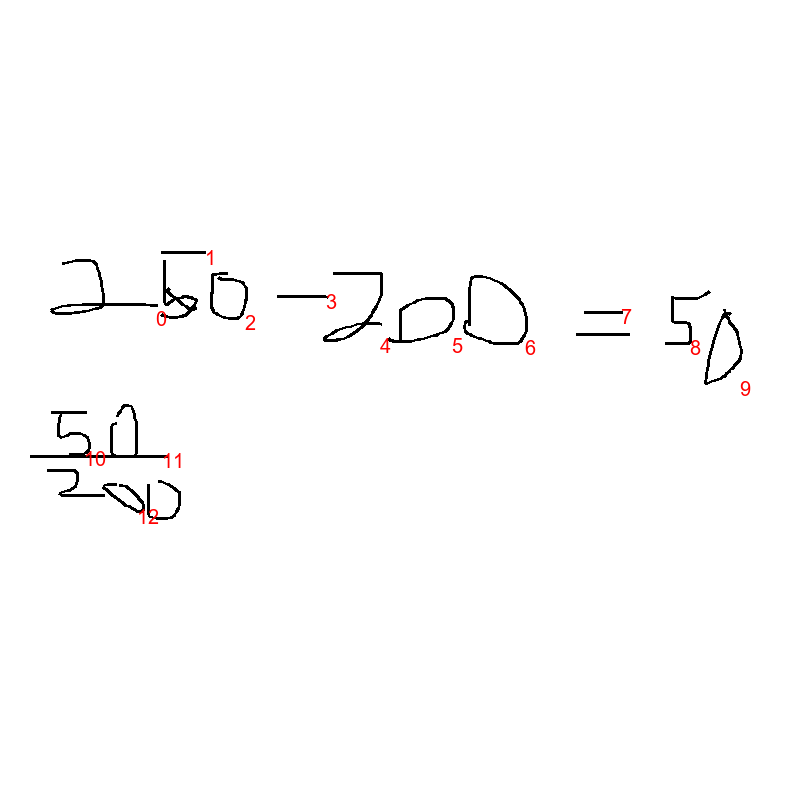 250 - 200 = 50
50
200
0 1 2 3 4 5 6 7 8 9 10 11 12